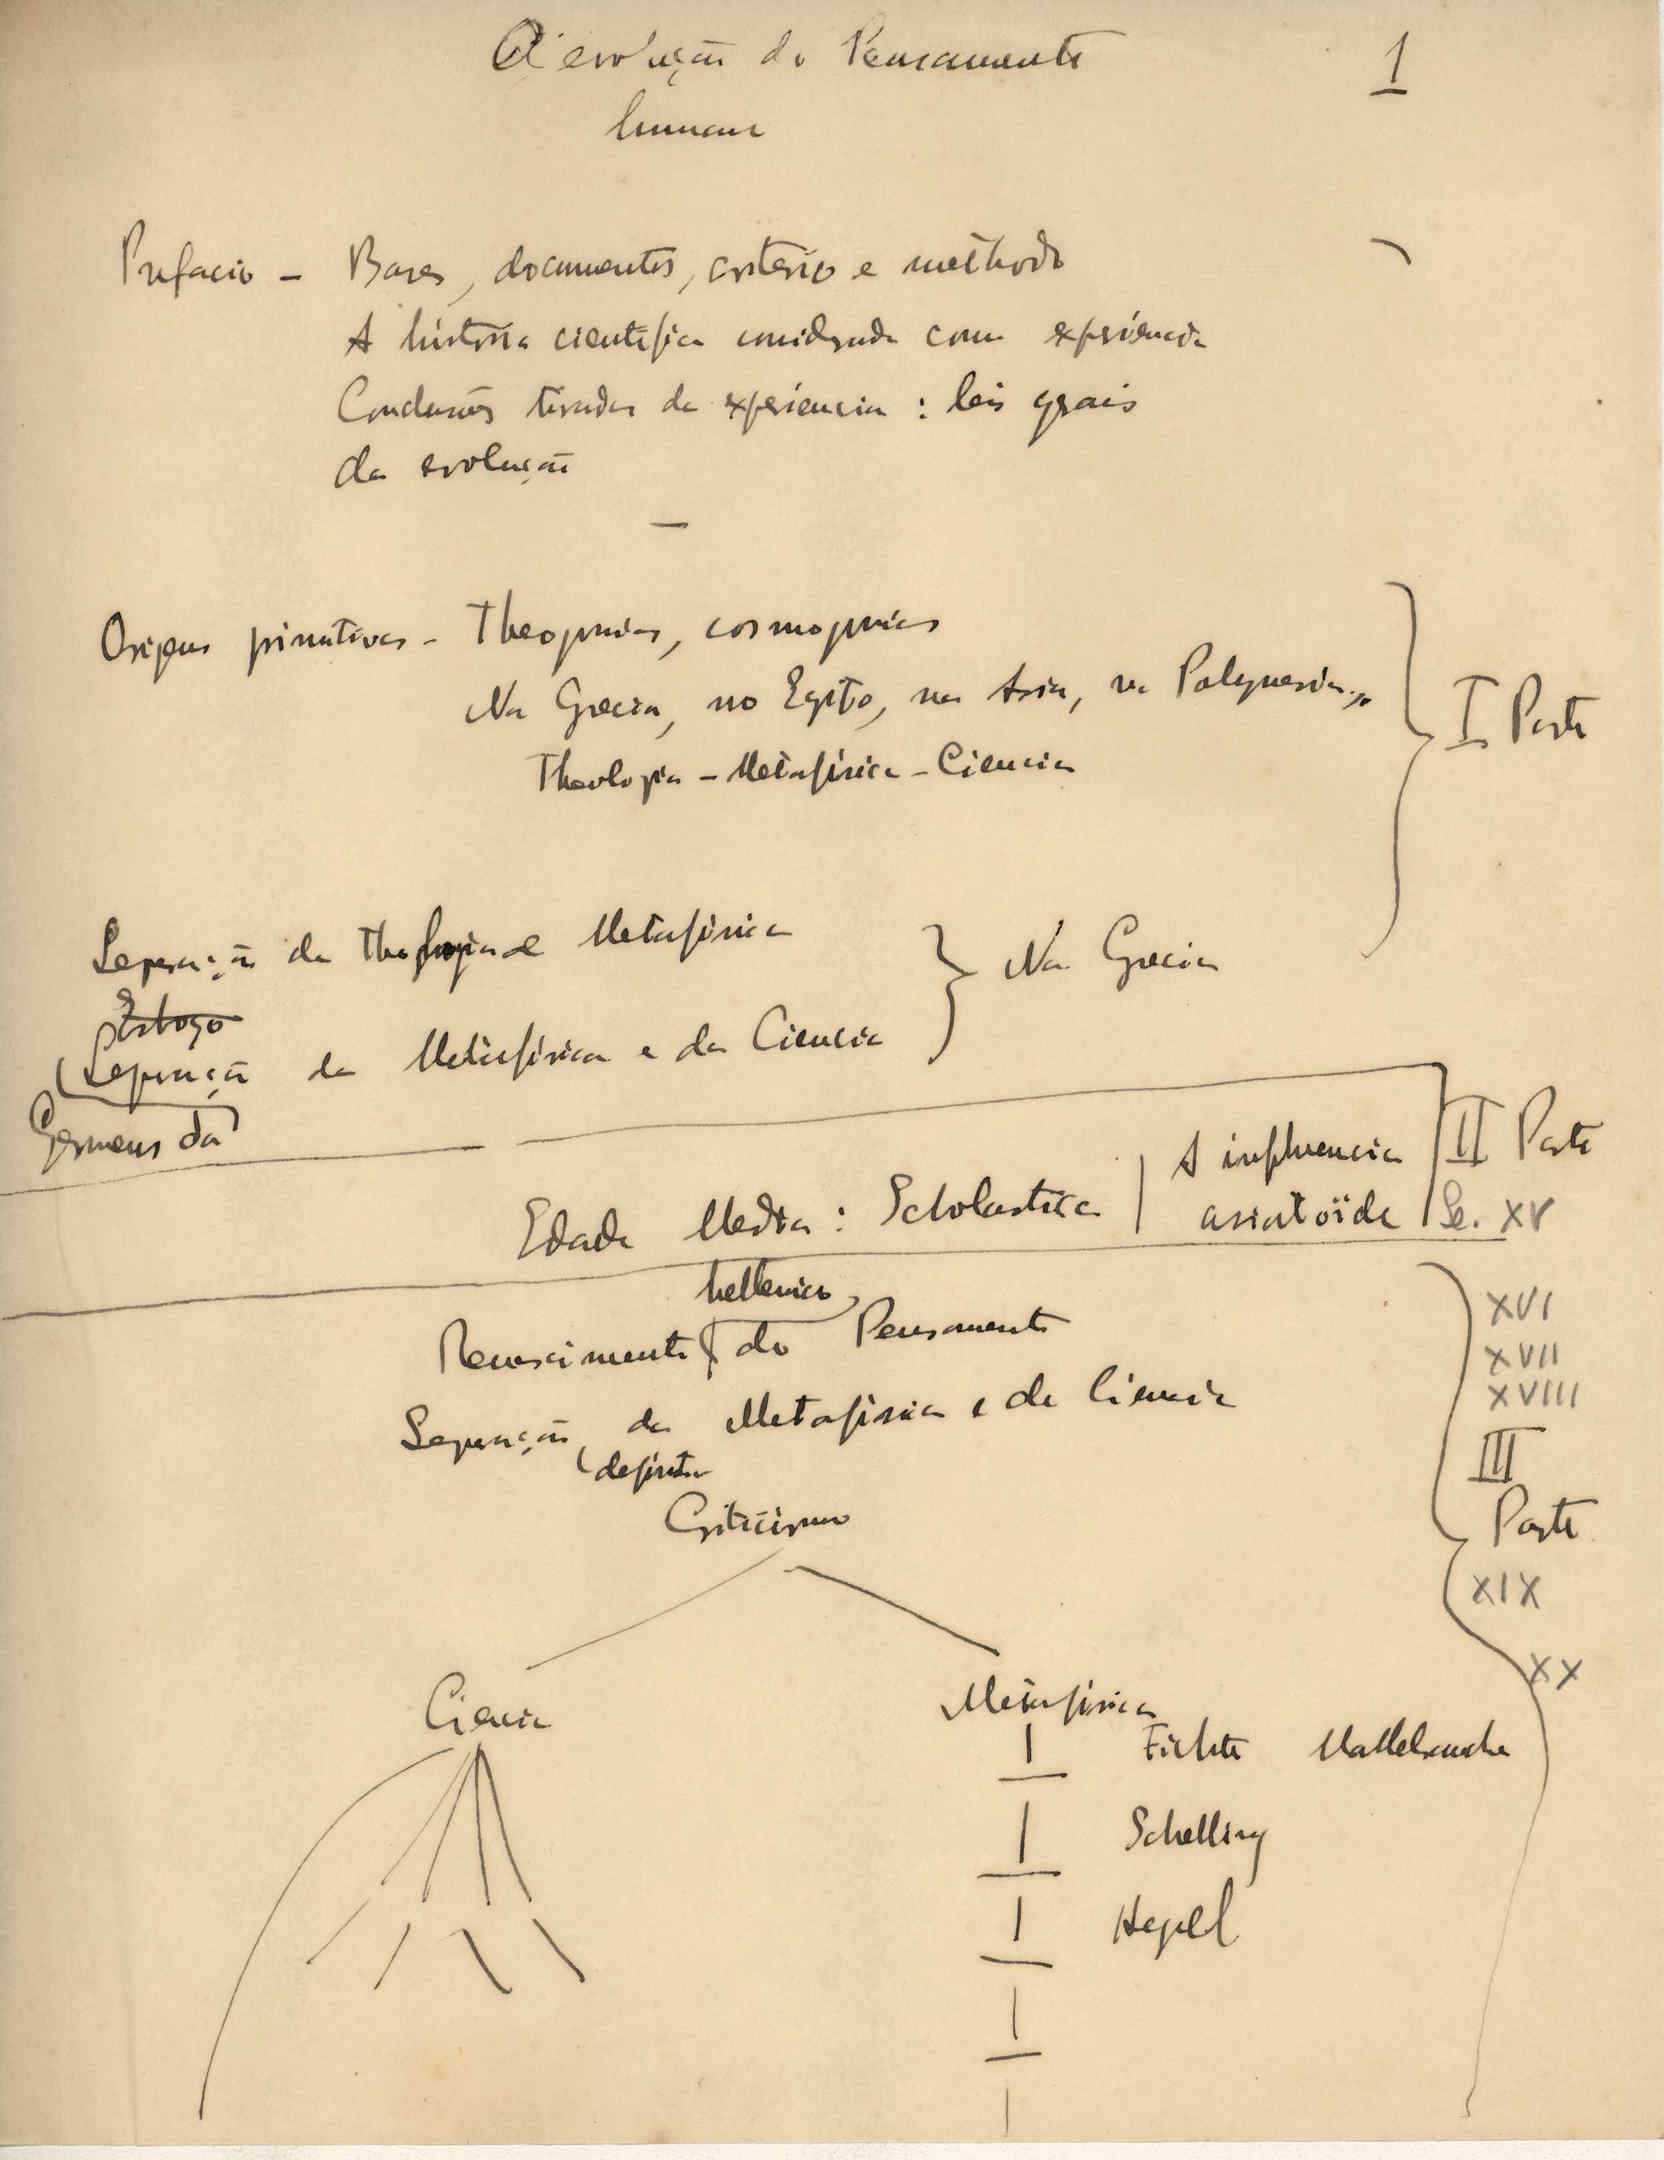 A evolução do Pensamento 1
humano
Prefacio - Bases, documentos, criterio e méthodo
A história cientifica considerada como experiência
Conclusões tiradas da experiencia : leis gerais
da evolução
Origens primitivas - Theogonias, cosmogonias
Na Grecia, no Egito, na Asia, na Polynesia,
I Parte
Theologia - Metafísica - Ciencia
Separação da Theologia e Metafísica
Na Grecia
Esboço
Separação da Metafísica e da Ciencia
Germens da
II Parte
Edade Media : Scholastica | A influencia
asiatoïde
Se. XV
hellenico
Renascimento do Pensamento
XVI
XVII
Separação da Metafísica e da Ciencia
XVIII
definitiva
III
Criticismo
Parte
XIX
XX
Ciencia Metafísica
Fichte Mallebranche
Schelling
Hegel